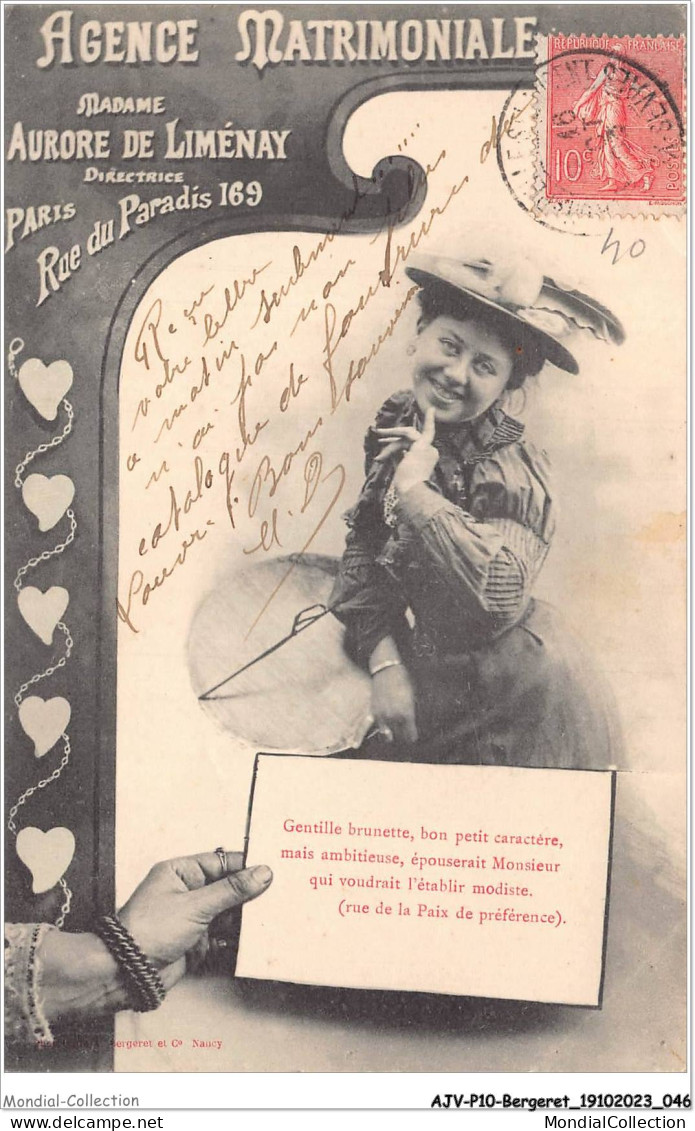 AGENCE MATRIMONIALE
MADAME
AURORE DE LIMÉNAY
DIRECTRICE
PARIS
Rue du Paradis 169
REPUBLIQUE FRANÇAISE
10 c
POSTES
40
votre lettre
matin seulement
n'ai pas non plus
catalogue de
Bons souvenirs
Gentille brunette, bon petit caractère,
mais ambitieuse, épouserait Monsieur
qui voudrait l'établir modiste.
(rue de la Paix de préférence).
Bergeret et Cº Nancy
Mondial-Collection
AJV-P10-Bergeret_19102023_046
MondialCollection